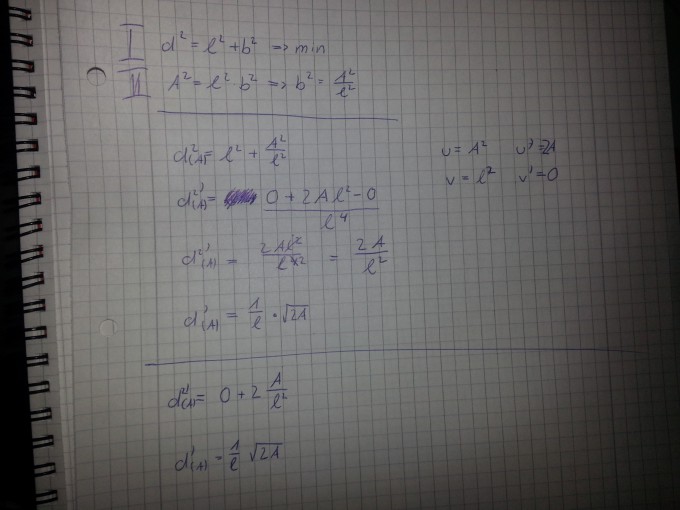 I d² = l² + b² => min
II A² = l² · b² => b² = A²/l²
d²(A) = l² + A²/l²
u = A² u' = 2A
v = l² v' = 0
d²'(A) = (0 + 2Al² - 0)/l⁴
d²'(A) = 2Al²/l⁴² = 2A/l²
d'(A) = 1/l · √2A
d²'(A) = 0 + 2 A/l²
d'(A) = 1/l √2A